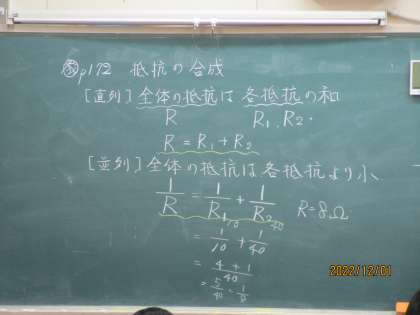 教p172 抵抗の合成
[直列]全体の抵抗は各抵抗の和
R R₁, R₂.
R = R₁ + R₂
[並列]全体の抵抗は各抵抗より小
1/R = 1/R₁ + 1/R₂
10 40
R=8Ω
= 1/10 + 1/40
= 4+1/40
= 5/40 = 1/8
2022/12/01